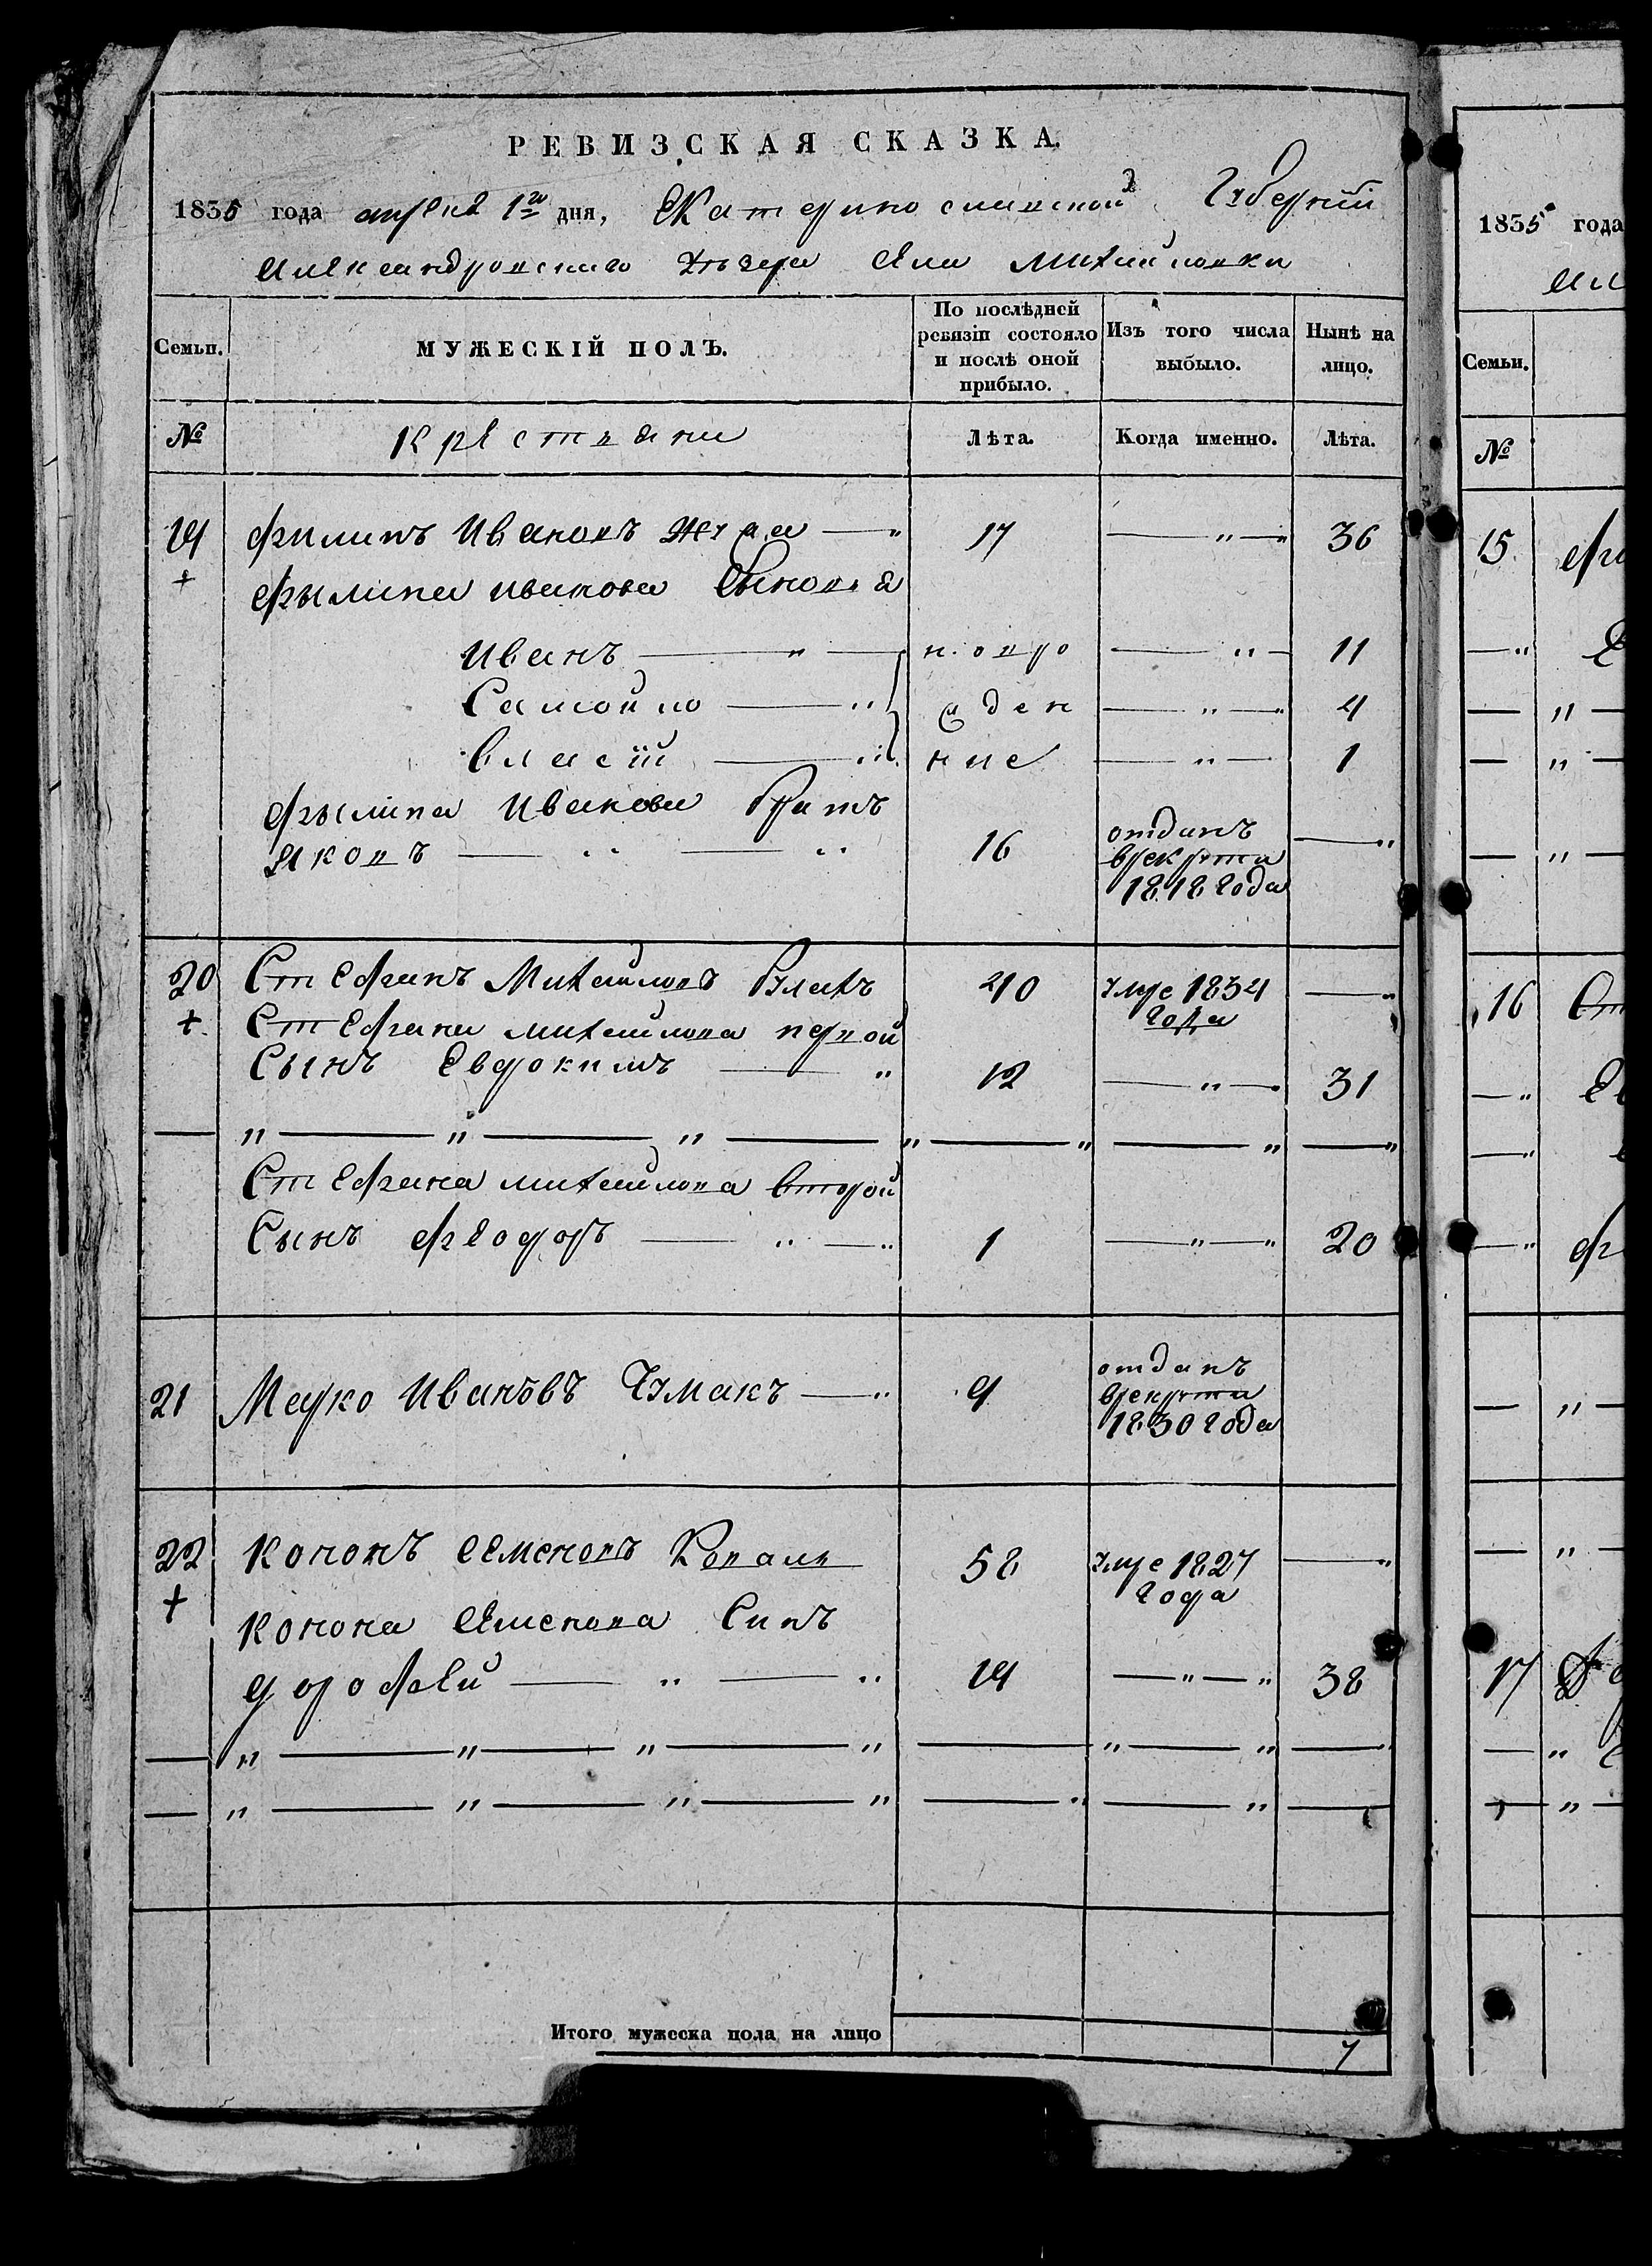 РЕВИЗСКАЯ СКАЗКА.
1835 года апреля 1го дня, Екатеринославской Губернїи
Александровскаго уезда Села Михайловки
Семьи. МУЖЕСКІЙ ПОЛЪ. По послѣдней ревизіи состояло и послѣ оной прибыло. Изъ того числа выбыло. Нынѣ на лицо.
№ Крестьяне Лѣта. Когда именно. Лѣта.
19 Филипъ Ивановъ — " 17 — " — " 36
+ Филипа иванова Сыновья
Иванъ — " — новро — " — 11
Самойло — " жден — " — 4
Власїй — " ние — " — 1
Филипа Иванова Братъ
Яковъ — " — " 16 отданъ врекрути 1818 года — "
20 Стефанъ Михайловъ Влахъ 40 умре 1834 года — "
+ Стефана михайлова первой
Сынъ Евдокимъ — " 12 — " — 31
— " — " — " — " — " — " — "
Стефана михайлова второй
Сынъ Феодоръ — " — " 1 — " — " 20
21 Марко Ивановъ Чумакъ — " 9 отданъ врекрути 1830 года
22 Кононъ Семеновъ Коваль 58 умре 1827 года — "
+ Конона Семенова Синъ
дорофей — " — " 19 — " — " 38
— " — " — " — " — " — " —
— " — " — " — " — " — " —
Итого мужеска пола на лицо 7
1835 года
Семьи.
№
15
16
17